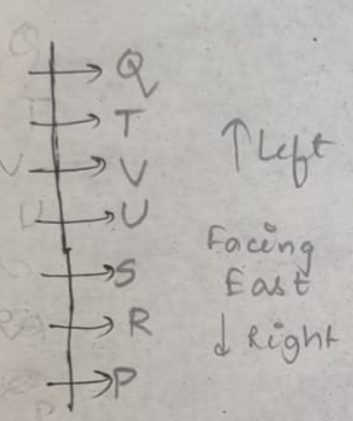 Q
T
V
↑ Left
U
Facing
East
S
R
↓ Right
P